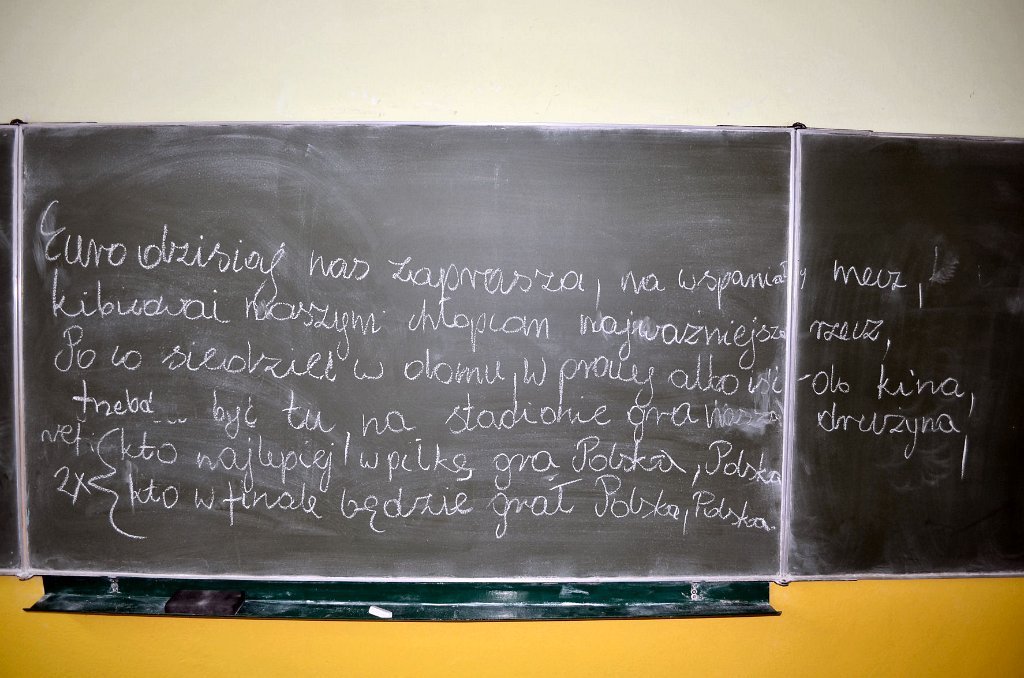 Euro dzisiaj nas zaprasza, na wspaniały mecz,
kibicować naszym chłopcom najważniejsza rzecz,
Po co siedzieć w domu, w pracy albo iść do kina,
trzeba być tu na stadionie gra nasza drużyna,
ref. kto najlepiej w piłkę gra Polska, Polska
2x kto w finale będzie grał Polska, Polska.